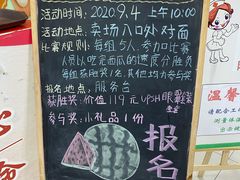 活动时间：2020.9.4 上午10:00
活动地点：卖场入口外对面
比赛规则：每组5人，参加比赛
人员以吃完西瓜的速度分胜负
每组获胜者1名，其他均为参与奖
报名地点：服务台
获胜奖：价值119元UPSH眼罩
参与奖：小礼品1份
报名
温馨
请配合工
测量体温